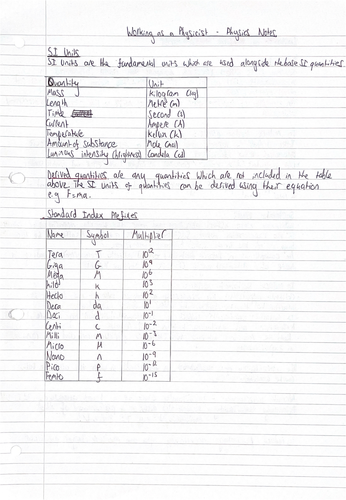 Working as a Physicist - Physics Notes
SI Units
SI Units are the fundamental units which are used alongside the base SI quantities.
Quantity Unit
Mass Kilogram (kg)
Length Metre (m)
Time Second (s)
Current Ampere (A)
Temperature Kelvin (k)
Amount of substance Mole (mol)
Luminous intensity (brightness) Candela (cd)
Derived quantities are any quantities which are not included in the table
above. The SI units of quantities can be derived using their equation
e.g. F=ma.
Standard Index Prefixes
Name Symbol Multiplier
Tera T 10¹²
Giga G 10⁹
Mega M 10⁶
kilo k 10³
Hecto h 10²
Deca da 10¹
Deci d 10⁻¹
Centi c 10⁻²
Milli m 10⁻³
Micro μ 10⁻⁶
Nano n 10⁻⁹
Pico p 10⁻¹²
Femto f 10⁻¹⁵